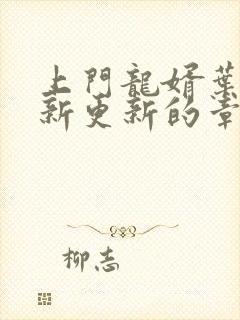 上門龍婿葉
新更新的章
柳志